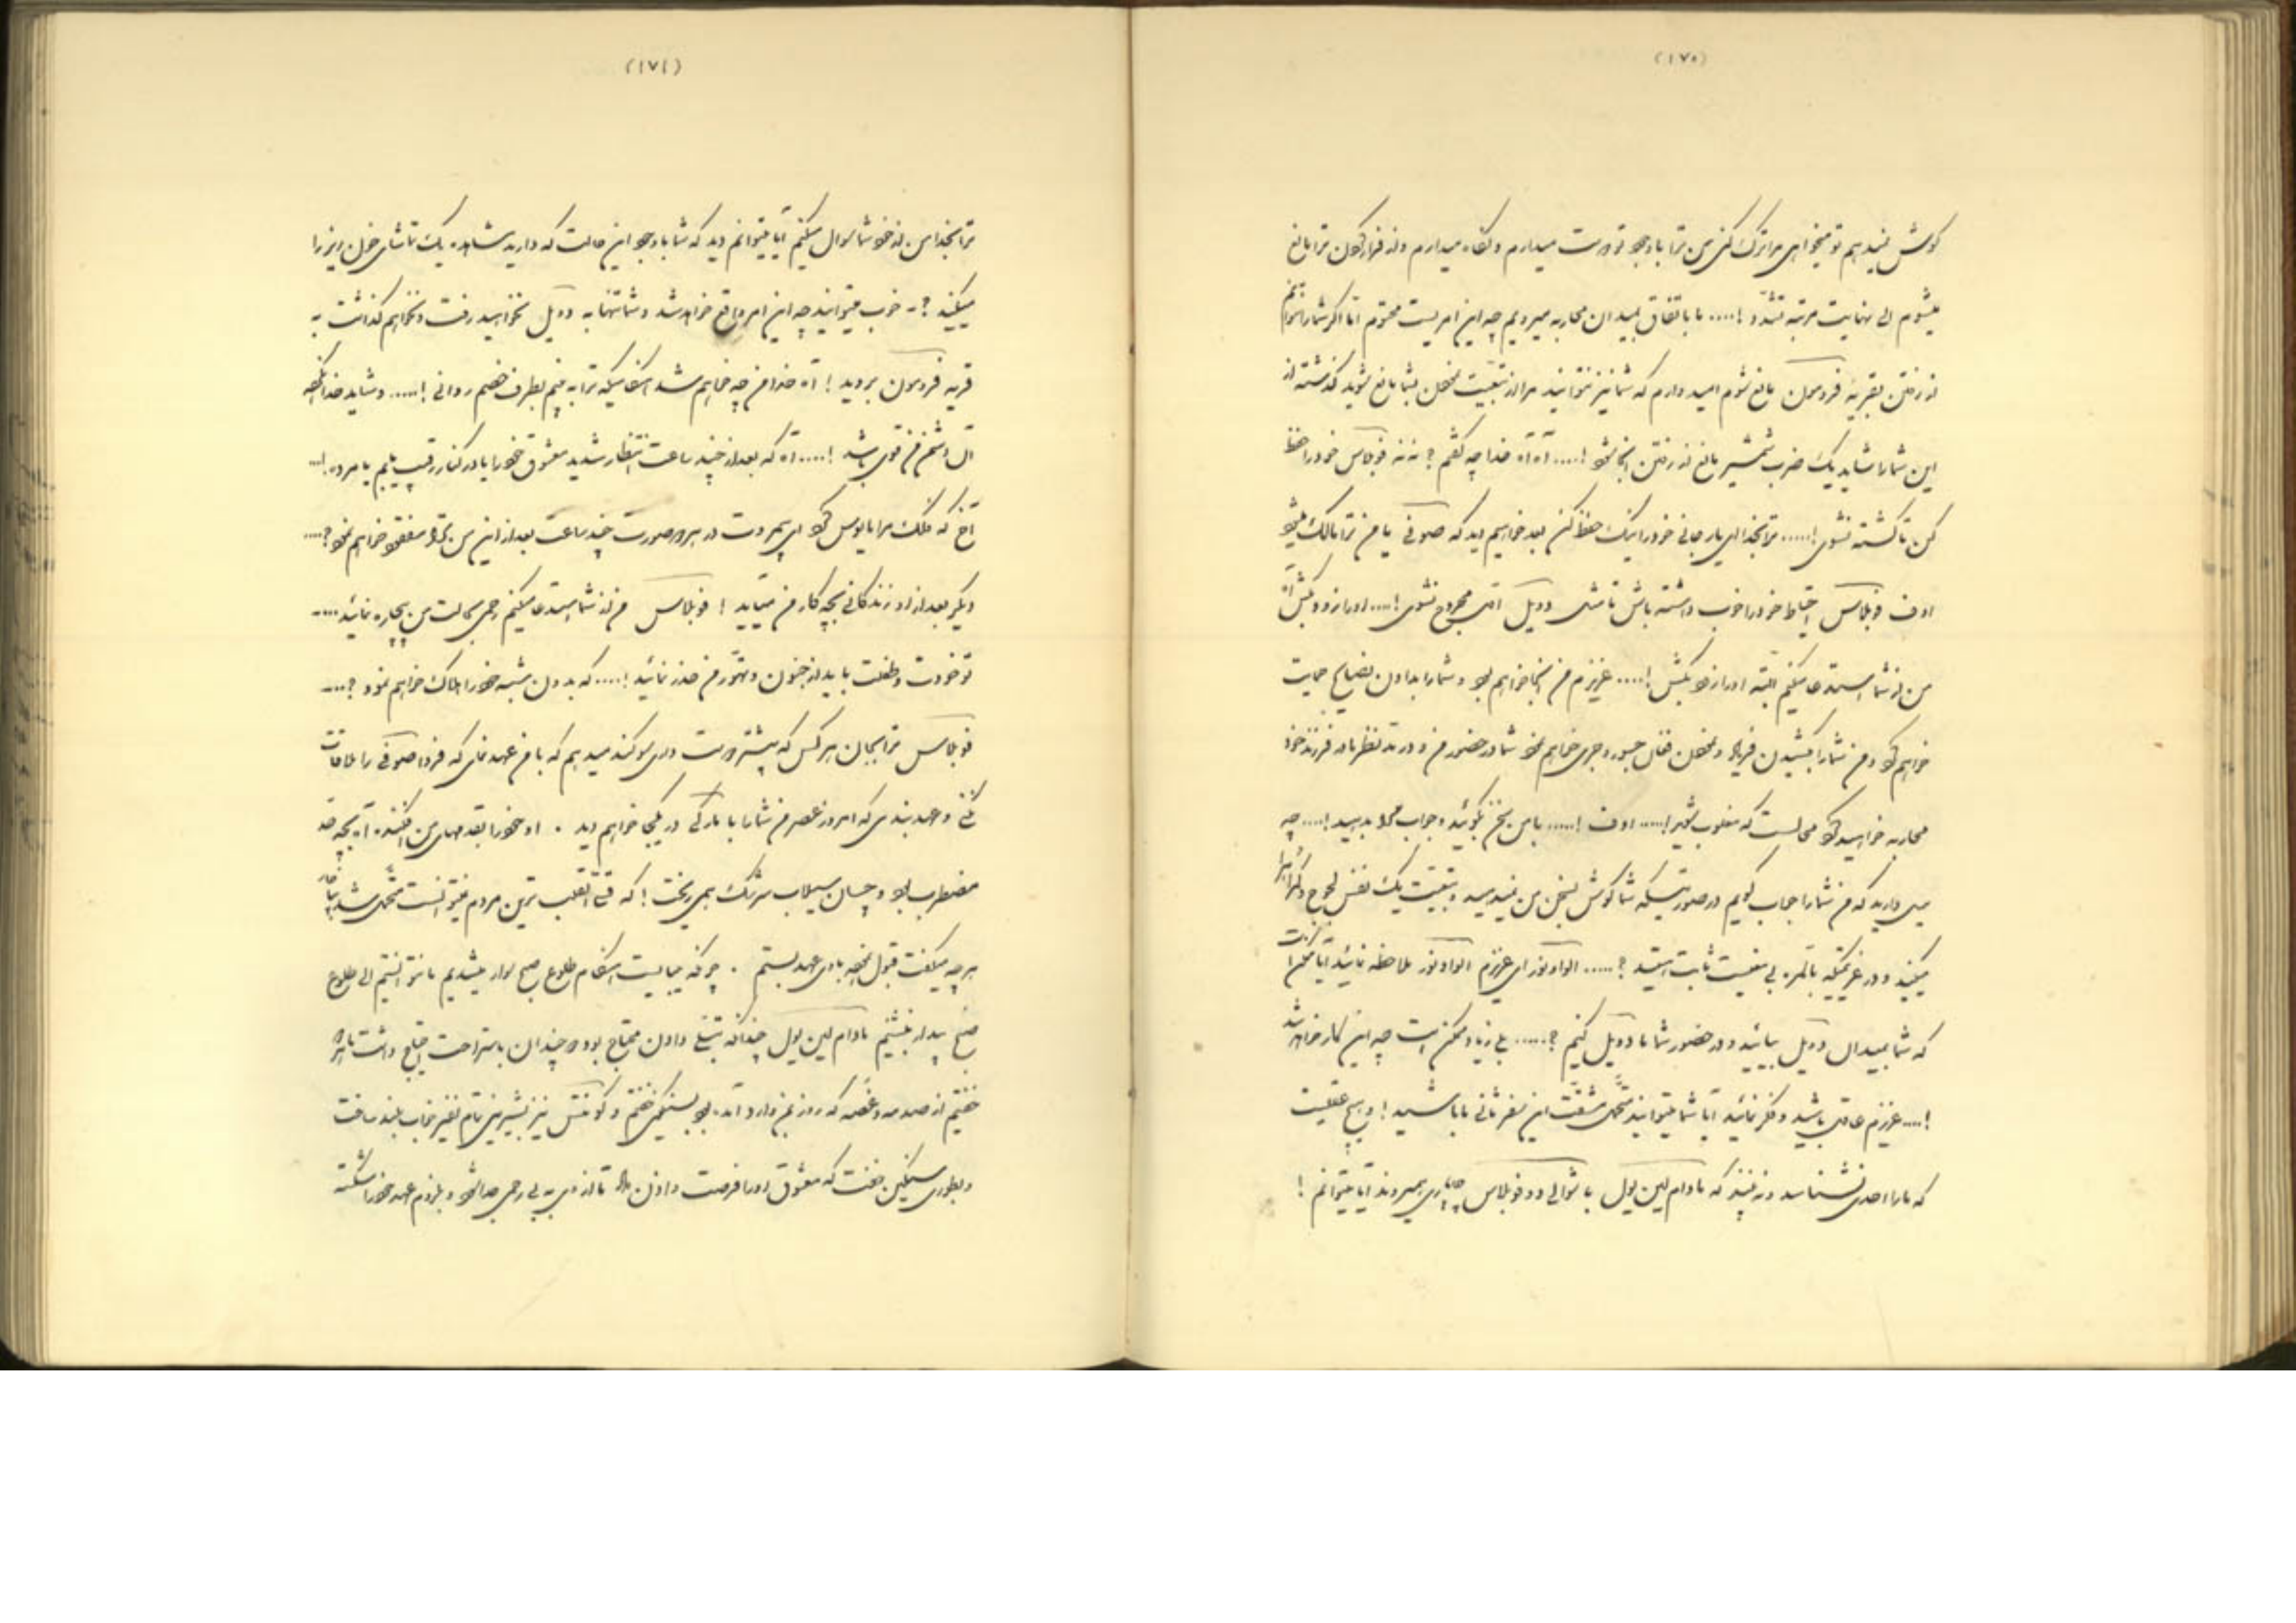 (۱۷۰)
کوش نمیدهم تو میخواهی مرا ترک کنی من ترا با وجود تو دوست میدارم و نگاه میدارم و از فرار کردن ترا مانع
میشوم الی نهایت مرتبه تشدّد !.... ما باتفاق بمیدان محاربه میرویم چه این امریست محتوم امّا اگر شما را نتوانم
از رفتن بقریهٔ فردمون مانع شوم امید دارم که شما نیز نتوانید مرا از تبعیّت بشما مانع شوید گذشته از
این شما را شاید یک ضرب شمشیر مانع از رفتن آنجا شود !.... آه آه خدا چه گفتم ؟ نه نه فوبلاس خود را حفظ
کن تا کشته نشوی !..... ترا بخدا ای یار جانی خود را نیک حفظ کن بعد خواهیم دید که صوفی یا من ترا مالک میشود
اوف فوبلاس احتیاط خود را خوب داشته باش تا مثل دوئل آخری مجروح نشوی !.... او را زود بکش آه
من از شما استدعا میکنم البته او را زود بکش !.... عزیزم من آنجا خواهم بود و شما را بدادن نصایح حمایت
خواهم کرد و من شما را بکشیدن فریاد جسور و جری خواهم نمود شما در حضور من و در مدّ نظر مادر فرزند خود
محاربه خواهید کرد محالست که مغلوب شوید !..... اوف !..... با من سخن بگوئید و جواب مرا بدهید !.... چه
میل دارید که من شما را جواب گویم در صورتیکه شما گوش بسخن من نمیدهید و تبعیّت یک نفس لجوج
میکنید و در عزیمتیکه بالمره بی منفعت ثابت هستید ؟..... الئونور ای عزیزم الئونور ملاحظه نمائید آیا ممکن است
که شما بمیدان دوئل بیائید و در حضور شما ما دوئل کنیم ؟..... بلی زیاد ممکن است چه این کار خواهد شد
!.... عزیزم عاقل باشید و فکر نمائید آیا شما میتوانید متحمّل مشقّت این سفر ثانی با ما باشید ! و هیچ
که ما را احدی نشناسد و نه بیند که مادام لین یول با شوالیه دو فوبلاس چاپاری میروند آیا میتوانم !
(۱۷۱)
ترا بخدا من از خود شما سوال میکنم آیا میتوانم دید که شما با وجود این حالت که دارید مشاهده یک تماشای خون ریز را
میکنید ؟ - خوب میتوانید چه این امر واقع خواهد شد و شما تنها به دوئل نخواهید رفت و نخواهم گذاشت به
قریه فردمون بروید ! آه خدا من چه خواهم شد هنگامیکه ترا به بینم بطرف خصم روانی !..... و شاید خدا نکرده
آن دشمن من قوی باشد !.... آه که بعد از چند ساعت انتظار شدید معشوق خود را یا در کنار رقیب یابم یا مرده !...
آخ که فلک مرا مایوس کرد ای بیمروت در هر دو صورت چند ساعت بعد از این من ترا مفقود خواهم نمود ؟....
دیگر بعد از او زندگانی بچه کار من میآید ! فوبلاس من از شما استدعا میکنم رحمی بحالت من بیچاره نمائید ....
تو خودت و طفلت باید از جنون و تهوّر من حذر نمائید !.... که بدون شبهه خود را هلاک خواهم نمود ؟....
فوبلاس ترا بجان هر کس که بیشتر دوست داری سوگند میدهم که با من عهد نمای که فردا صوفی را ملاقات
کنی و عهد بندی که امروز عصر من شما را با مارکی در یکجا خواهم دید . او خود را بقدمهای من افکنده آه بچه قدر
مضطرب بود و چسان سیلاب سرشک همی ریخت ! که قسیّ القلب ترین مردم نمیتوانست متحمّل شد
هر چه میگفت قبول نموده با وی عهد بستم . چونکه میبایست هنگام طلوع صبح سوار میشدیم ما نتوانستیم الی طلوع
صبح بیدار نشینیم مادام لین یول چندانکه تسلّی دادن محتاج بود دو چندان باستراحت احتیاج داشت ما هر دو
خفتیم از صدمه و غصّه که روز بمن وارد آمده بود بسنگینی خفتم و کونتس نیز بشیرینی تمام نفیر خواب بلند ساخت
و بطوری سنگین خفت که معشوق او را فرصت دادن داد تا از وی به بی رحمی جدا شود و بلزوم عهد خود را شکسته